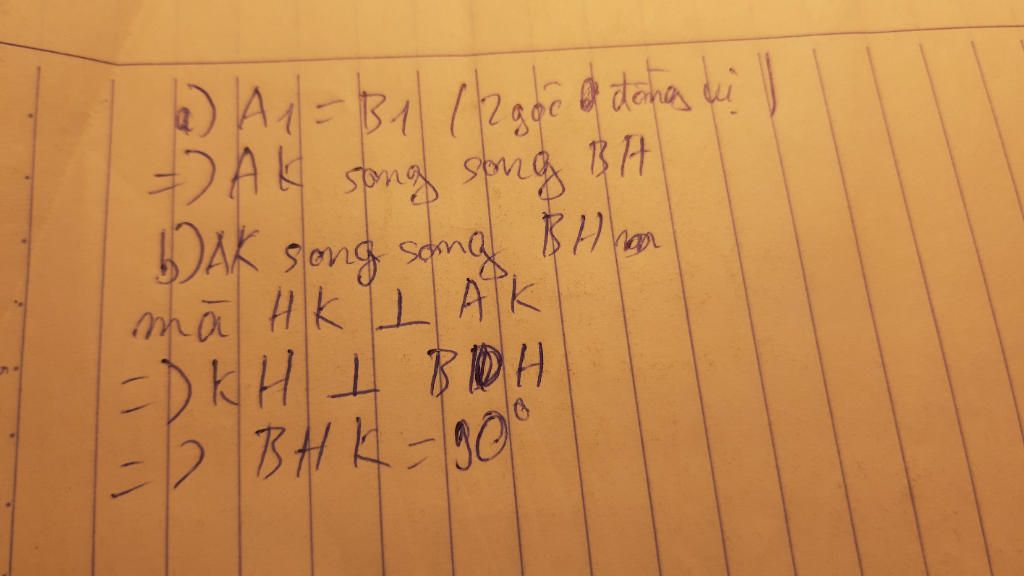 a) A1 = B1 (2 góc đồng vị)
=> AK song song BH
b) AK song song BH
mà HK ⊥ AK
=> KH ⊥ BH
=> BHK = 90°